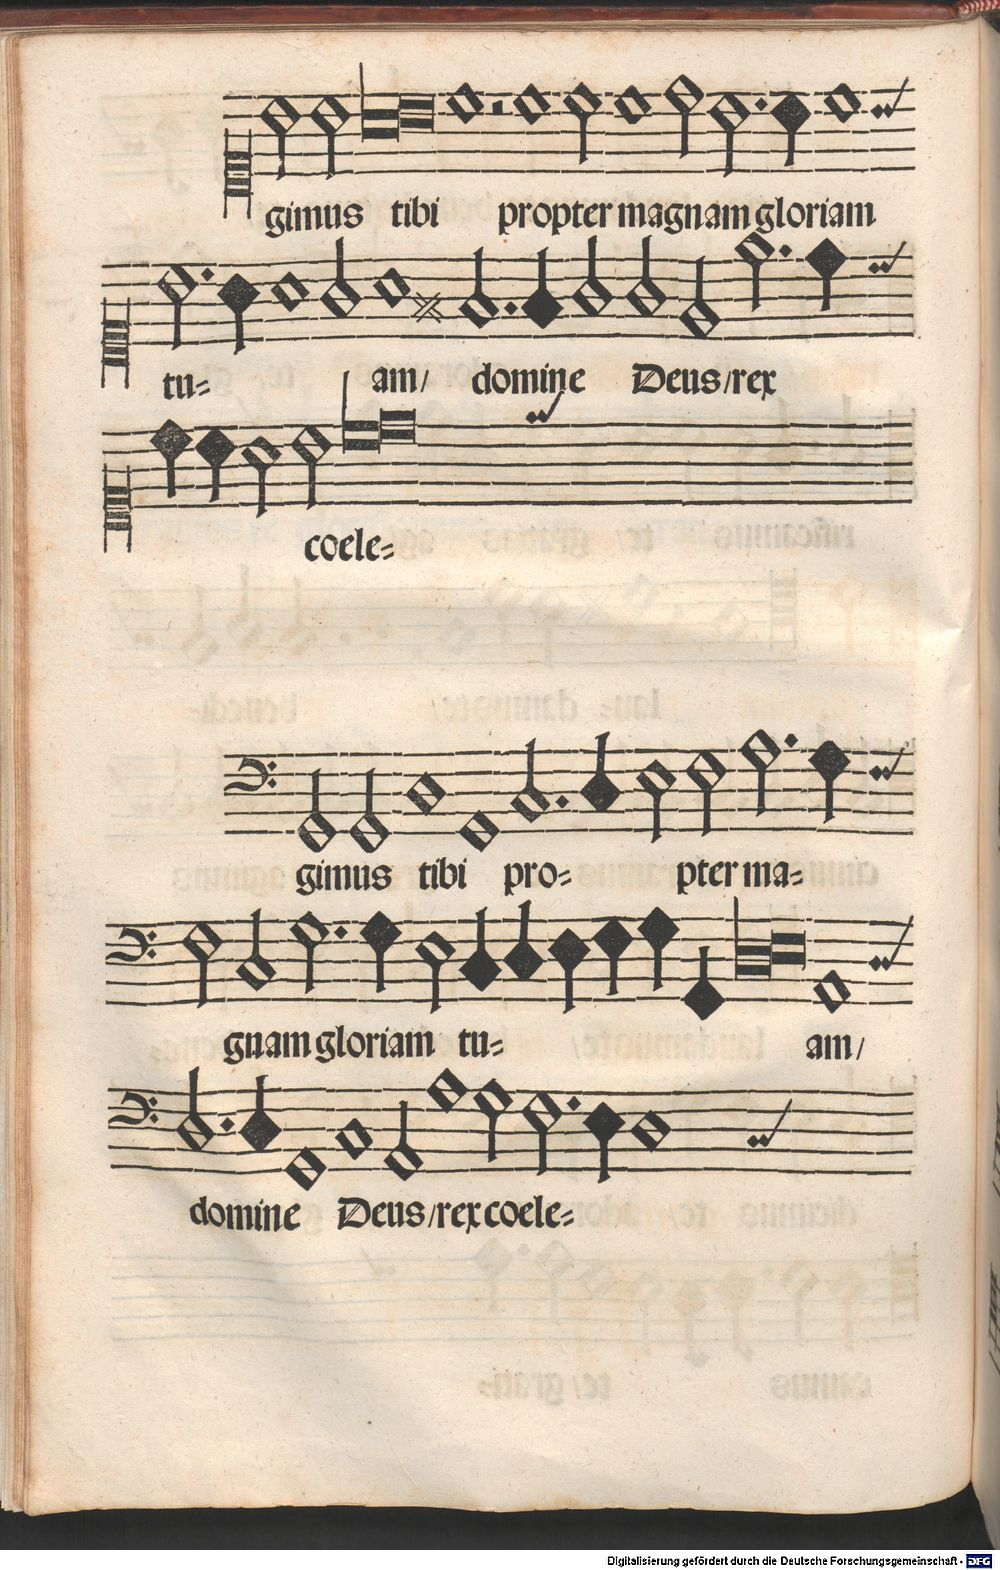 gimus tibi propter magnam gloriam
tu= am/ domine Deus/rex
coele=
gimus tibi pro= pter ma=
gnam gloriam tu= am/
domine Deus/rex coele=
Digitalisierung gefördert durch die Deutsche Forschungsgemeinschaft - DFG